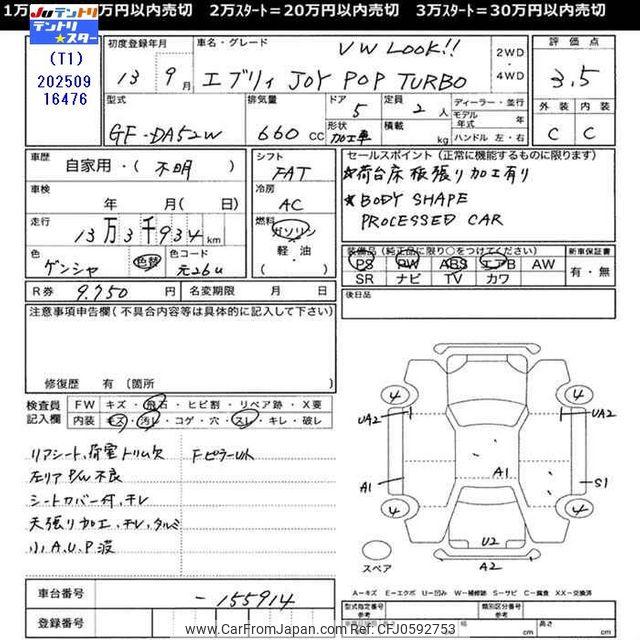 2万ｽﾀｰﾄ＝20万円以内売切 3万ｽﾀｰﾄ＝30万円以内売切
JUテントリ
テントリ★スター
(T1)
202509
16476
初度登録年月
13年9月
車名・グレード
VW LOOK!!
エブリィ JOY POP TURBO
2WD
・
4WD
評価点
3.5
型式
GF-DA52W
排気量
660cc
ドア
5
形状
加工車
定員
2人
積載
kg
ディーラー・並行
モデル
年式
年
ハンドル 左・右
外装 内装
C C
車歴
自家用・(不明)
シフト
FAT
車検
年 月(日)
冷房
AC
走行
13万3千934km
燃料
ガソリン
軽・油
( )
色
ゲンシャ
色替
色コード
元26U
セールスポイント(正常に機能するものに限ります)
★荷台床板張り加工有り
★BODY SHAPE
PROCESSED CAR
装備品(純正品に限り○をつけてください)
PS PW ABS エアB AW
SR ナビ TV カワ
新車保証書
有・無
R券 9.750円
名変期限 月 日
後日品
注意事項申告欄(不具合内容等は具体的に記入して下さい)
修復歴 有(箇所 )
検査員
記入欄
FW キズ・飛石・ヒビ割・リペア跡・X要
内装 キズ・汚レ・コゲ・穴・スレ・キレ・破レ
リアシート、荷室トリム欠
左リアP/W不良
シートカバー付、キレ
天張り加工、キレ、タルミ
小A.U.P波
4 4
UA2 UA2
A1 A1 S1
4 4
U2
A2
スペア
A＝キズ E＝エクボ U＝凹み W＝補修跡 S＝サビ C＝腐食 XX＝交換済
車台番号
-155914
登録番号
型式指定番号
類別区分番号
cm
高さ
cm
www.CarFromJapan.com CFJ0592753